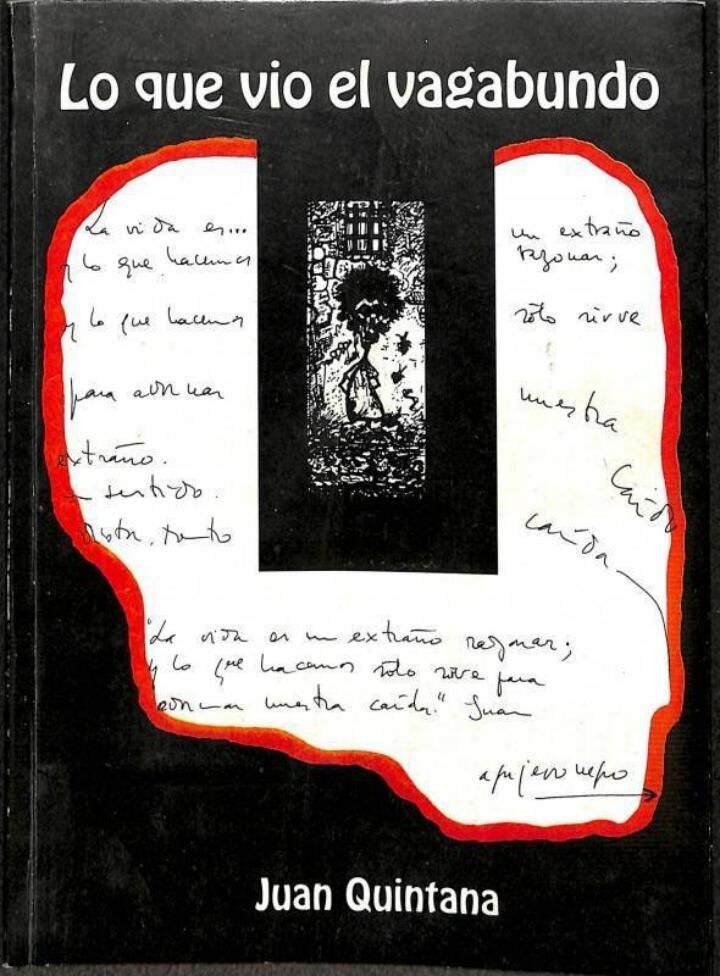 Lo que vio el vagabundo
La vida es...
y lo que hacemos
y lo que hacemos
para adornar
extraño.
sentido.
tanto
un extraño
razonar;
sólo sirve
nuestra
caída
caída
"La vida es un extraño razonar;
y lo que hacemos sólo sirve para
adornar nuestra caída." Juan
Juan Quintana